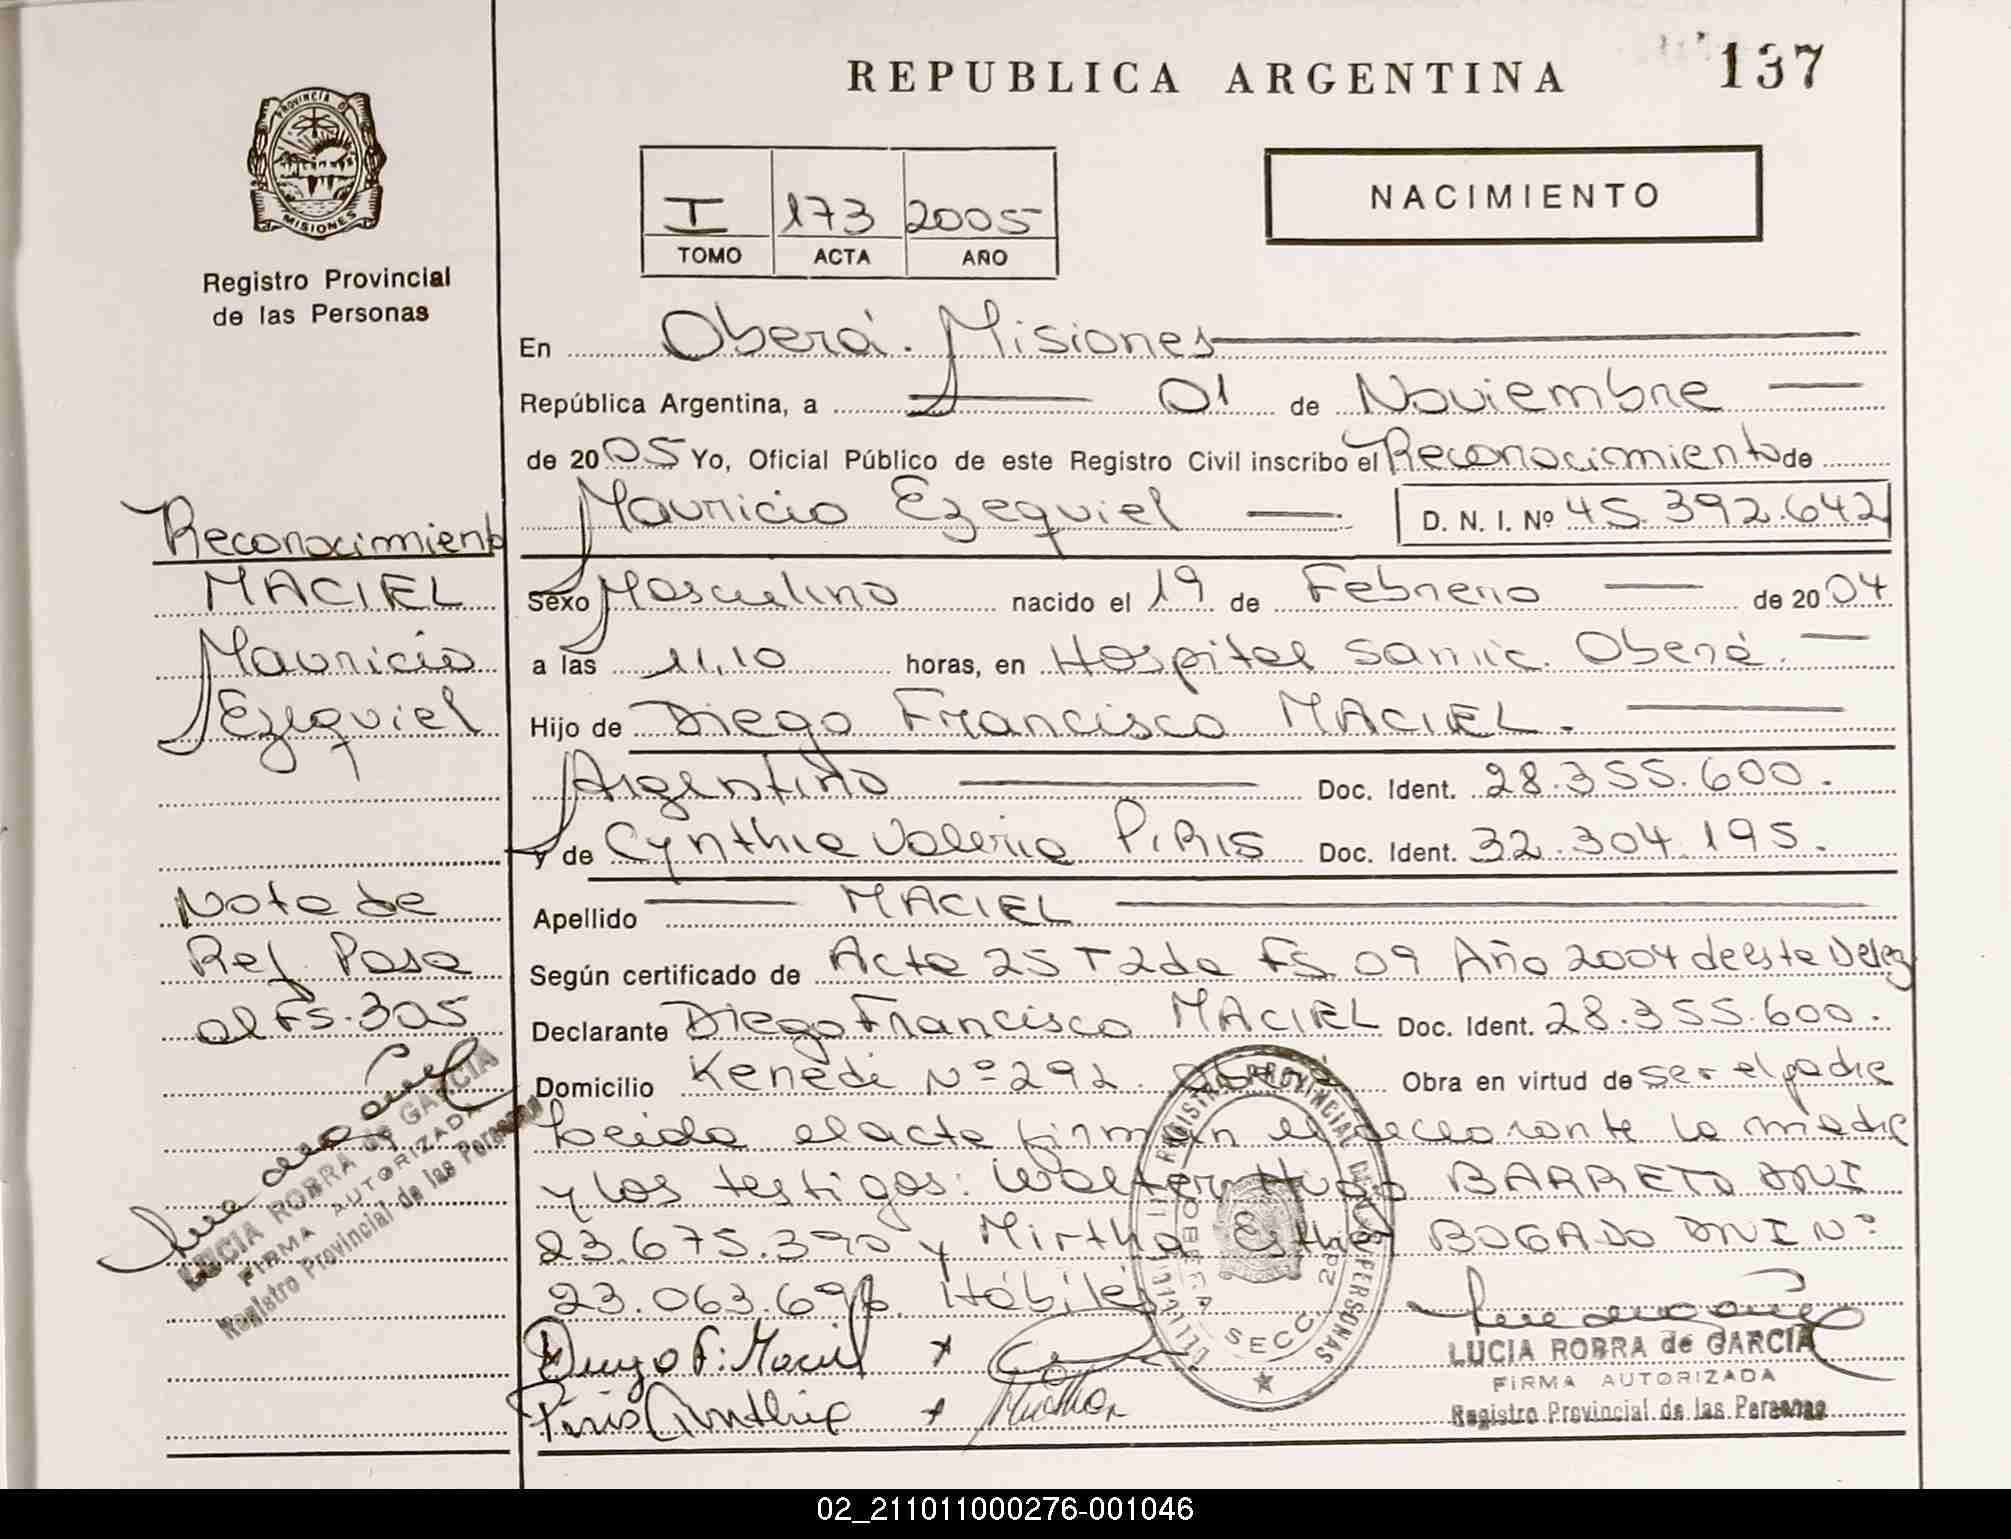 137
REPUBLICA ARGENTINA
PROVINCIA D
MISIONES
Registro Provincial
de las Personas
I 173 2005
TOMO ACTA AÑO
NACIMIENTO
En Oberá. Misiones
República Argentina, a 01 de Noviembre
de 2005 Yo, Oficial Público de este Registro Civil inscribo el Reconocimiento de
Mauricio Ezequiel D. N. I. Nº 45.392.642
Sexo Masculino nacido el 19 de Febrero de 2004
a las 11,10 horas, en Hospital Samic. Oberá.
Hijo de Diego Francisco MACIEL.
Argentino Doc. Ident. 28.355.600.
y de Cynthia Valeria PIRIS Doc. Ident. 32.304.195.
Apellido MACIEL
Según certificado de Acta 25 T 2da Fs. 09 Año 2004 de esta Deleg
Declarante Diego Francisco MACIEL Doc. Ident. 28.355.600.
Domicilio Kenedi Nº 292. Oberá Obra en virtud de ser el padre
Leida el acta firman el declarante la madre
y los testigos: Walter Hugo BARRETO DNI
23.675.390 y Mirtha Esther BOGADO DNI Nº
23.063.696. Hábiles
Diego F. Maciel
Piris Cynthia
Reconocimiento
MACIEL
Mauricio
Ezequiel
Nota de
Ref. Pasa
al Fs. 305
LUCIA ROBRA de GARCIA
FIRMA AUTORIZADA
Registro Provincial de las Personas
REGISTRO PROVINCIAL DE LAS PERSONAS
OBERA SECC. 2da
LUCIA ROBRA de GARCIA
FIRMA AUTORIZADA
Registro Provincial de las Personas
02_211011000276-001046